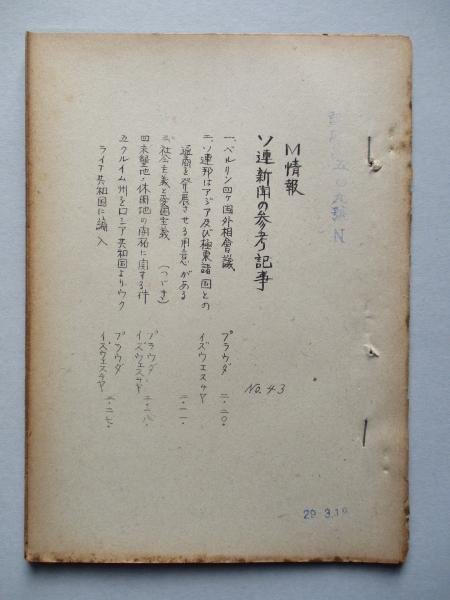 M情報
ソ連新聞の参考記事
No.43
一、ベルリン四ヶ国外相會議 プラウダ 二・二〇・
二、ソ連邦はアジア及び極東諸国との
通商を発展させる用意がある イズウエスチヤ
三、社会主義と愛国主義 (つづき) 二・二一・
四、未墾地・休閑地の開拓に関する件 プラウダ イズウエスチヤ 二・二八・
五、クルイム州をロシア共和国よりウク
ライナ共和国に編入 プラウダ イズウエスチヤ 二・二七・
29.3.1